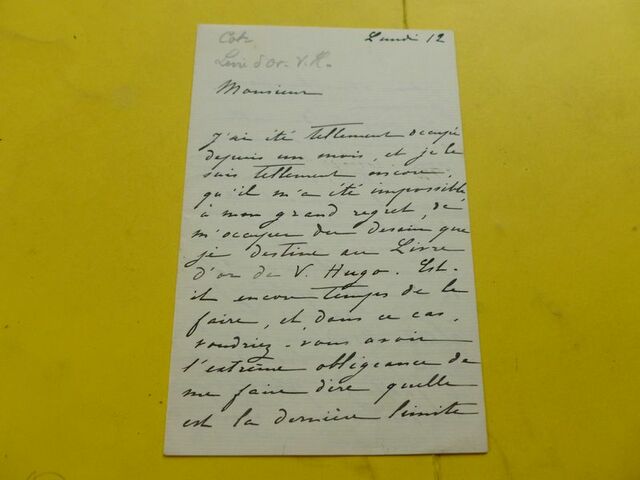 Lundi 12
Livre d'Or. V. H.
Monsieur
J'ai été tellement occupé
depuis un mois, et je le
suis tellement encore,
qu'il m'a été impossible
à mon grand regret, de
m'occuper du dessin que
je destine au Livre
d'or de V. Hugo. Est-
il encore temps de le
faire, et, dans ce cas,
voudriez-vous avoir
l'extrême obligeance de
me faire dire quelle
est la dernière limite